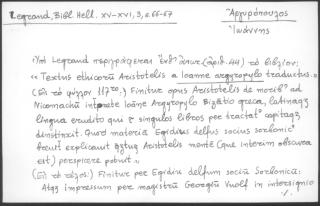 Legrand, Bibl. Hell. XV-XVI, 3, σ. 66-67
Ἀργυρόπουλος
Ἰωάννης
Ὑπὸ Legrand περιγράφεται ἐνθ' ἄνωτ. (ἀριθ. 44) τὸ βιβλίον:
« Textus ethicorum Aristotelis a Ioanne argyropylo traductus.
(Εἰς τὸ φύλλον): Finitur opus Aristotelis de moribꝰ ad
Nicomachū Ioāne Argyropylo Bizātio greca, latinaqꝫ
lingua erudito qui & singulos libros per tractatꝰ capitaqꝫ
distinxit. Quod materia Egidius delfus socius sorbonicꝰ
Aristotelis monte (que interim obscura
est) perspicere potuit.
(Εἰς τὸ τέλος:) Finitur per Egidiū delfum sociū Sorbonicū:
Atqꝫ impressum per magistrū Georgiū Wolf in intersignio
./.